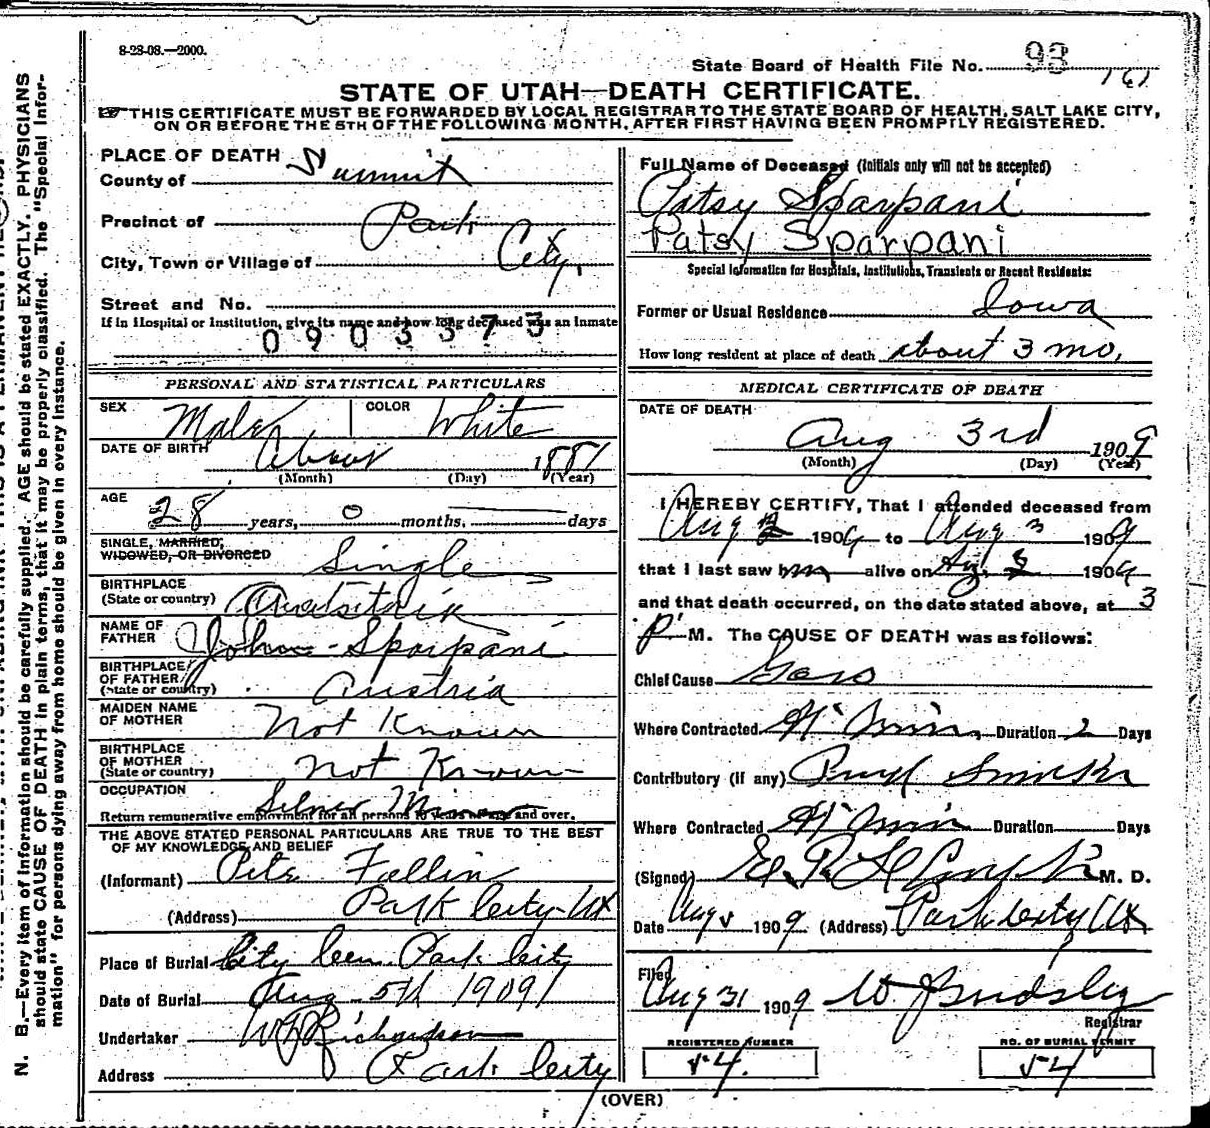 8-28-08.—2000.
State Board of Health File No. 93
161
STATE OF UTAH—DEATH CERTIFICATE.
THIS CERTIFICATE MUST BE FORWARDED BY LOCAL REGISTRAR TO THE STATE BOARD OF HEALTH, SALT LAKE CITY,
ON OR BEFORE THE 5TH OF THE FOLLOWING MONTH, AFTER FIRST HAVING BEEN PROMPTLY REGISTERED.
PLACE OF DEATH
County of Summit
Precinct of Park
City, Town or Village of City,
Street and No.
If in Hospital or Institution, give its name and how long deceased was an inmate
0903373
PERSONAL AND STATISTICAL PARTICULARS
SEX Male COLOR White
DATE OF BIRTH About 1881
(Month) (Day) (Year)
AGE
28 years, 0 months, days
SINGLE, MARRIED,
WIDOWED, OR DIVORCED Single
BIRTHPLACE
(State or country)
NAME OF
FATHER John Sparpani
BIRTHPLACE
OF FATHER
(State or country) Austria
MAIDEN NAME
OF MOTHER Not Known
BIRTHPLACE
OF MOTHER
(State or country) Not Known
OCCUPATION
Silver Miner
Return remunerative employment for all persons 10 years of age and over.
THE ABOVE STATED PERSONAL PARTICULARS ARE TRUE TO THE BEST
OF MY KNOWLEDGE AND BELIEF
(Informant) Pete Fallin
(Address) Park City Ut
Place of Burial City Cem. Park City
Date of Burial Aug 5th 1909
Undertaker Richardson
Address Park City
Full Name of Deceased (Initials only will not be accepted)
Patsy Sparpani
Patsy Sparpani
Special Information for Hospitals, Institutions, Transients or Recent Residents:
Former or Usual Residence Iowa
How long resident at place of death about 3 mo.
MEDICAL CERTIFICATE OF DEATH
DATE OF DEATH
Aug 3rd 1909
(Month) (Day) (Year)
I HEREBY CERTIFY, That I attended deceased from
Aug 1909 to Aug 3 1909
that I last saw him alive on Aug. 1909
and that death occurred, on the date stated above, at 3
P M. The CAUSE OF DEATH was as follows:
Chief Cause
Where Contracted Duration 2 Days
Contributory (if any)
Where Contracted Duration Days
(Signed) M. D.
Date Aug 1909 (Address) Park City Ut
Filed
Aug 31 1909
Registrar
REGISTERED NUMBER
54.
NO. OF BURIAL PERMIT
54
(OVER)
N. B.—Every item of information should be carefully supplied. AGE should be stated EXACTLY. PHYSICIANS
should state CAUSE OF DEATH in plain terms, that it may be properly classified. The "Special Infor-
mation" for persons dying away from home should be given in every instance.